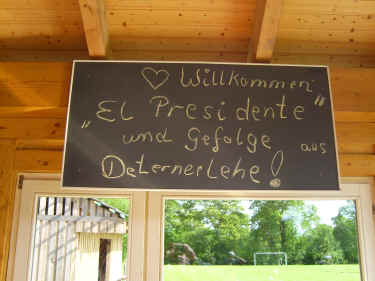 ♡ Willkommen
„EL Presidente"
und Gefolge aus
Deternerlehe!